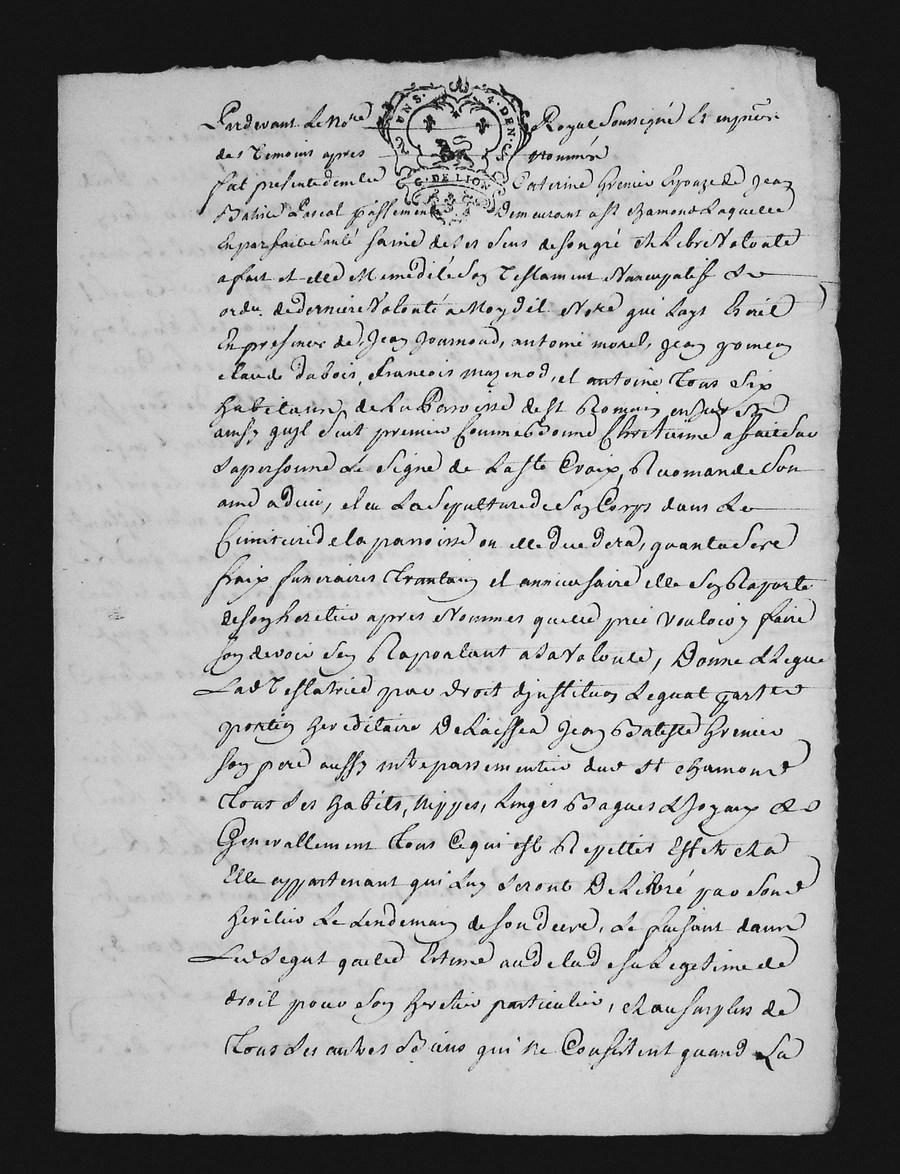 Pardevant Le No.re Royal Soussigné Et en pnce
UN S. 4. DEN.
G. DE LION
des Temoins apres Nommés
fut presente demlle Caterine Grenier Epouze de Jean
Batiste Pascal passement Demeurant a St Chamond Laquelle
En parfaite Santé saine de ses Sens de son gré et Libre Volonté
a fait et elle Meme dicté Son Testament Nuncupatif &
ordce de derniere Volonté a Moy dit Nore qui Lays Ecrit
En presence de, Jean Journoud, antoine morel, Jean
claude Dubois, francois mazenod, et antoine Tous Six
habitans de La Parroisse de St Romain en Jarest
ainsy quil Suit premier Comme bonne Chretienne a fait Sur
Sa personne Le Signe de La Ste Croix, Recomande Son
ame a dieu, eleu La Sepulture de Son Corps dans Le
Cimitiere de la parroisse ou elle decedera, quant a Ses
fraix funeraires Trantain et anniversaire elle Sen Raporte
de son heretier apres Nommes quelle prie Vouloir y faire
Son devoir Sen Raportant a Sa Volonté, Donne & Legue
Lad Testatrice par droit d'institution Legat part et
portion hereditaire De Laissea Jean Batiste Grenier
Son pere aussy mtre passementier dud St chamond
Tous Ses habits, Nippes, Linges Bagues & Joyaux &
Generallement Tous Ce qui est Reputter Estre a
Elle appartenant qui Luy Seront Delibré par Son d
heretier Le Lendemain de Son deces, Le faisant dans
Led Legat quelle Estime au dela de sa Legetime de
droit pour Son heretier particulier, et au surplus de
Tous Ses autres Biens qui Ne Consistent quand La